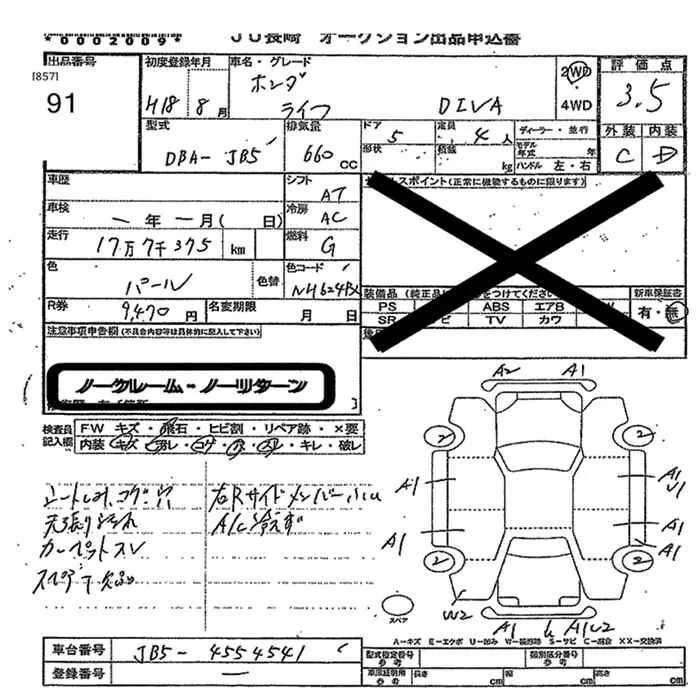 *0002009*
JU長崎 オークション出品申込書
出品番号
[857]
91
初度登録年月
H18 8月
車名・グレード
ホンダ
ライフ DIVA
2WD
4WD
評価点
3.5
外装 内装
C D
型式
DBA-JB5
排気量
660 CC
ドア 5
形状
定員 4人
積載 kg
ディーラー・並行
モデル年式 年
ハンドル 左・右
車歴
シフト AT
車検
年 月( 日)
冷房 AC
走行
17万7千375 km
燃料 G
色
パール
色替
色コード
R券
9,470円
名変期限 月 日
スポイント(正常に機能するものに限ります)
装備品(純正品に をつけてください
PS ABS エアB
SR TV カワ
新車保証書
有・無
注意事項申告欄(不具合内容等は具体的に記入して下さい)
ノークレーム・ノーリターン
検査員記入欄
FW キズ・飛石・ヒビ割・リペア跡・×要
内装 キレ・破レ
天張り
カーペットスレ
スペアT欠品
A/C冷えず
A2 A1
2 2
A1 A1
U1
A1 A1
2 2
W2
スペア
A1 A1U2
A-キズ E-エクボ U-凹み W-補修跡 S-サビ C-腐食 XX-交換済
車台番号
JB5-4554541
登録番号
型式指定番号
参考
類別区分番号
参考
車庫証明用
参考
長さ cm
幅 cm
高さ cm